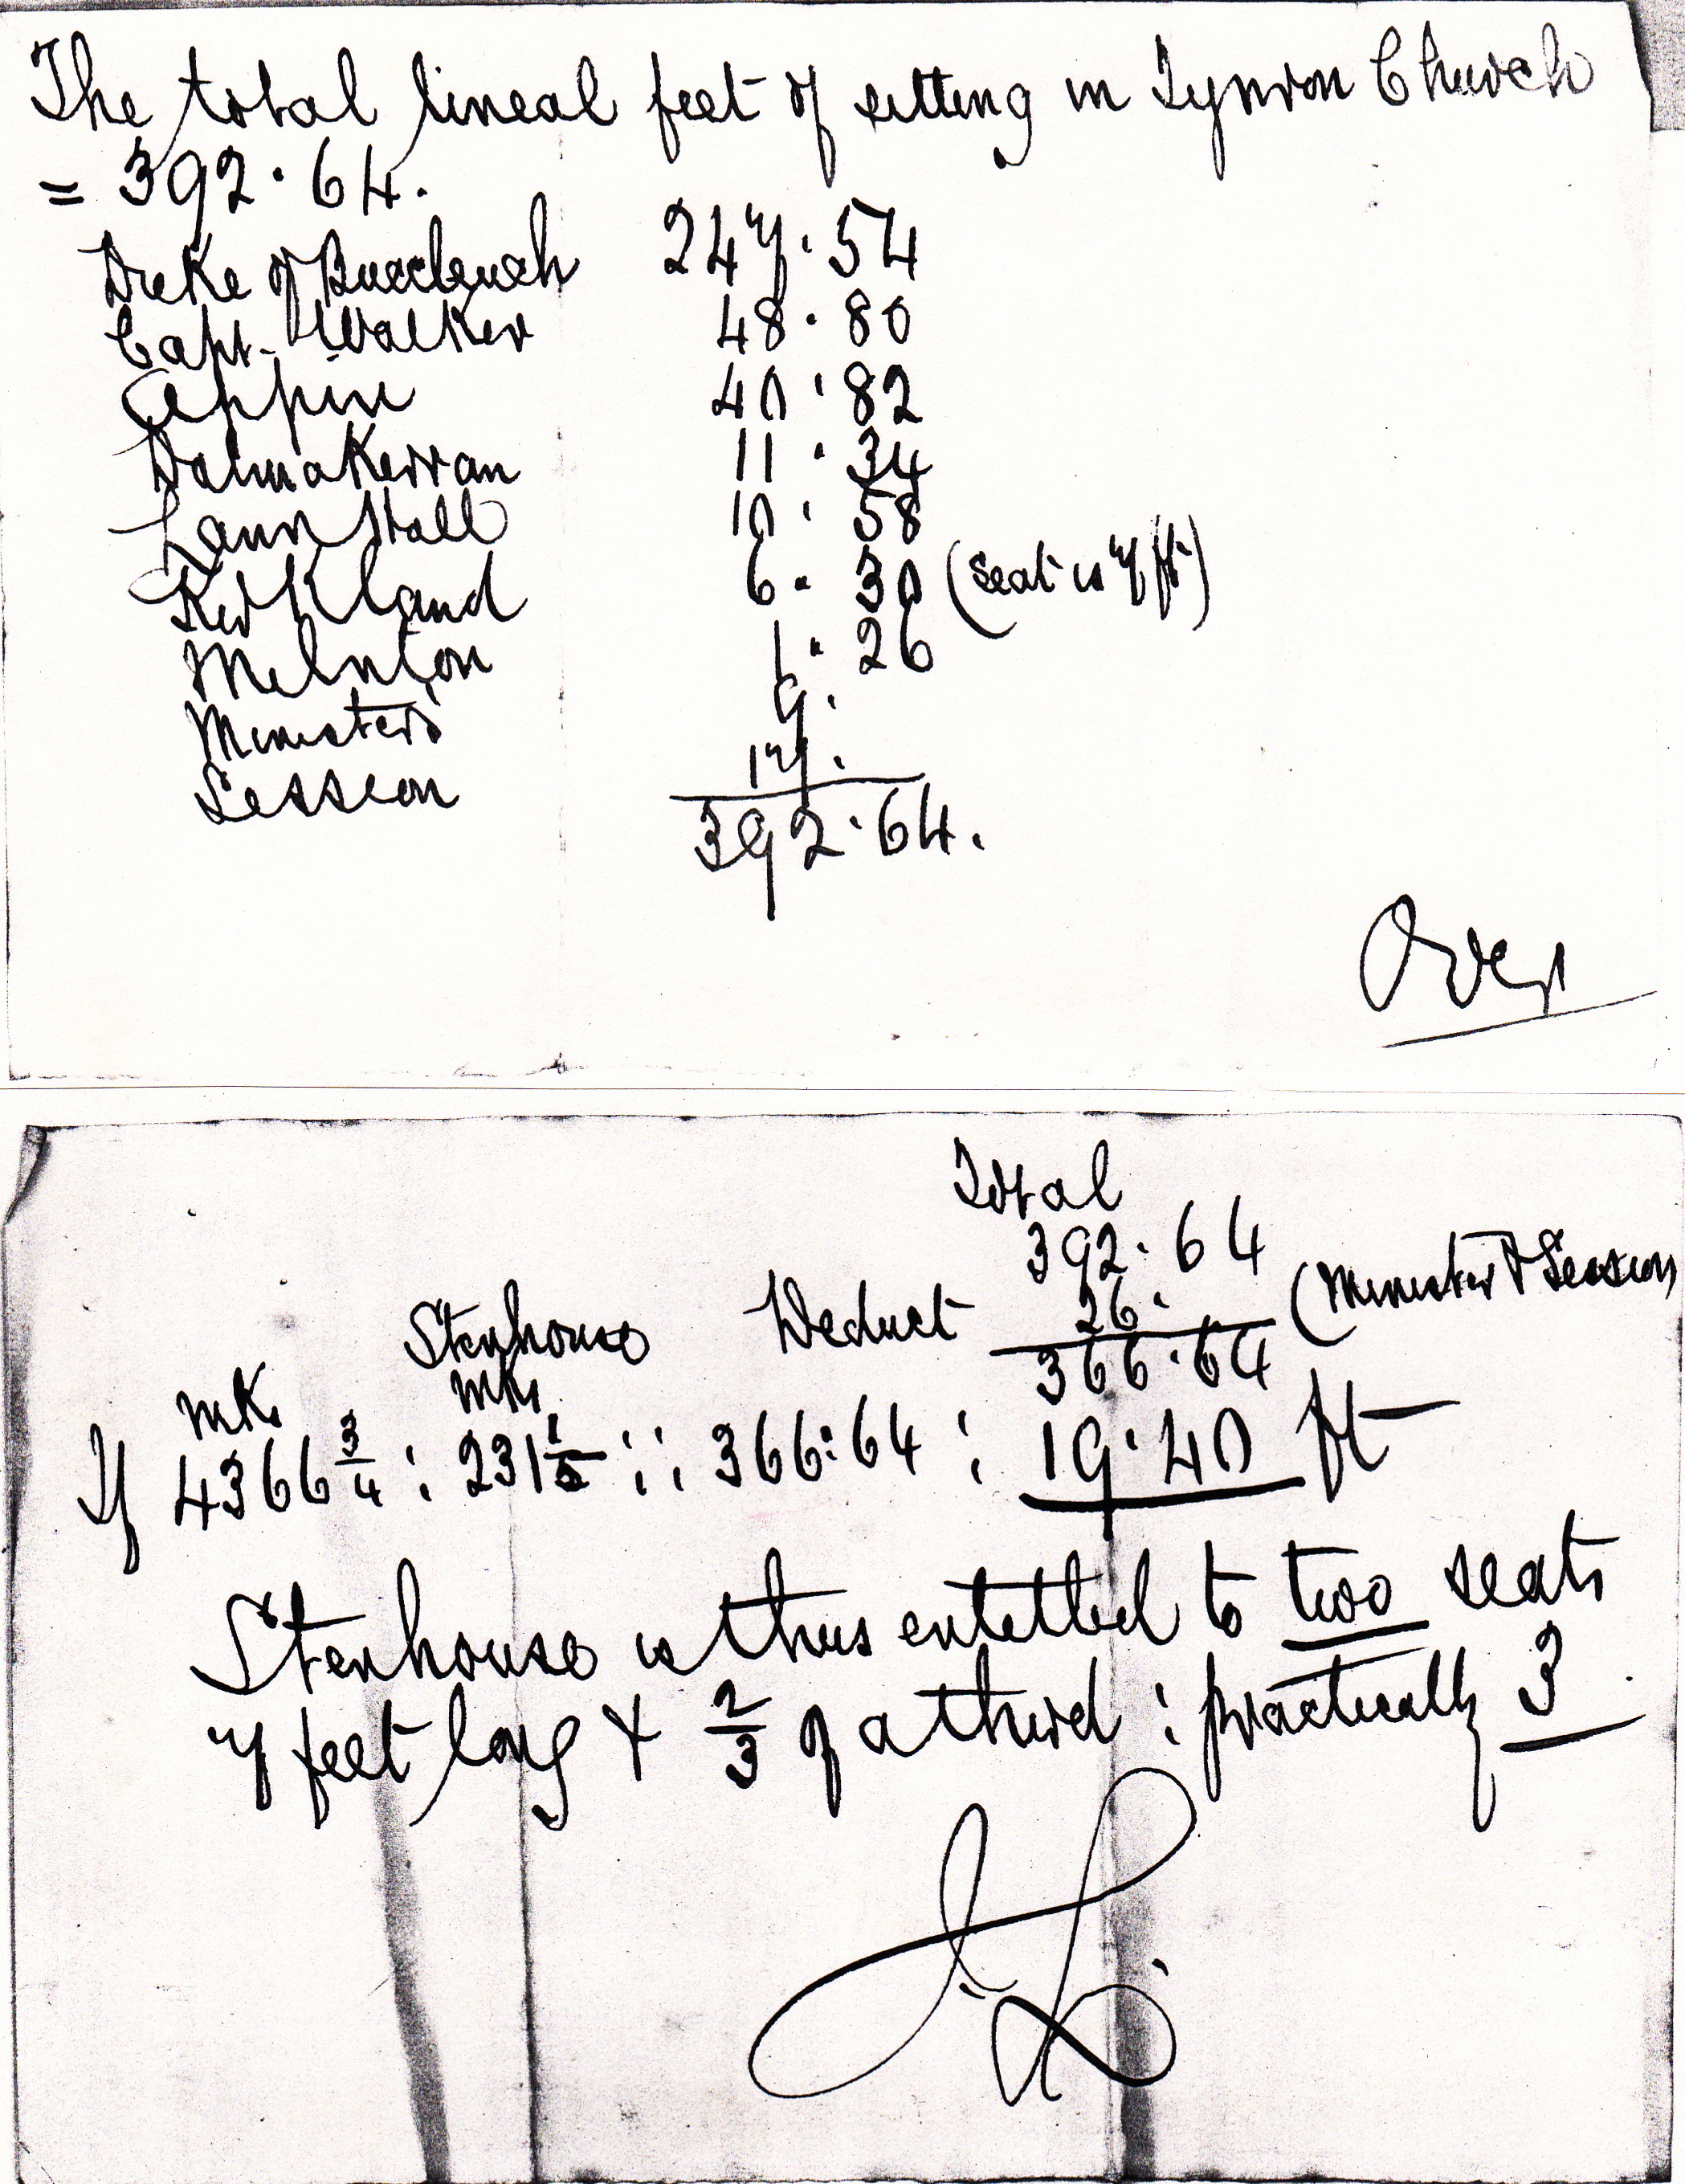 The total lineal feet of sitting in Tynron Church
= 392·64.
Duke of Buccleuch 247·54
Capt. Walker 48·80
Appin 40·82
Dalmakerran 11·34
Lann Hall 10·58
Kirkland 6·30 (seat is 7 ft.)
Milnton 1·26
Ministers 9·
Session 17·
392·64.
Over
Total
392·64
Deduct 26· (Minister & Session
366·64
Stenhouse
mks mks
If 4366 3/4 : 231 1/2 :: 366:64 : 19·40 ft
Stenhouse is thus entitled to two seats
7 feet long & 2/3 of a third : practically 3